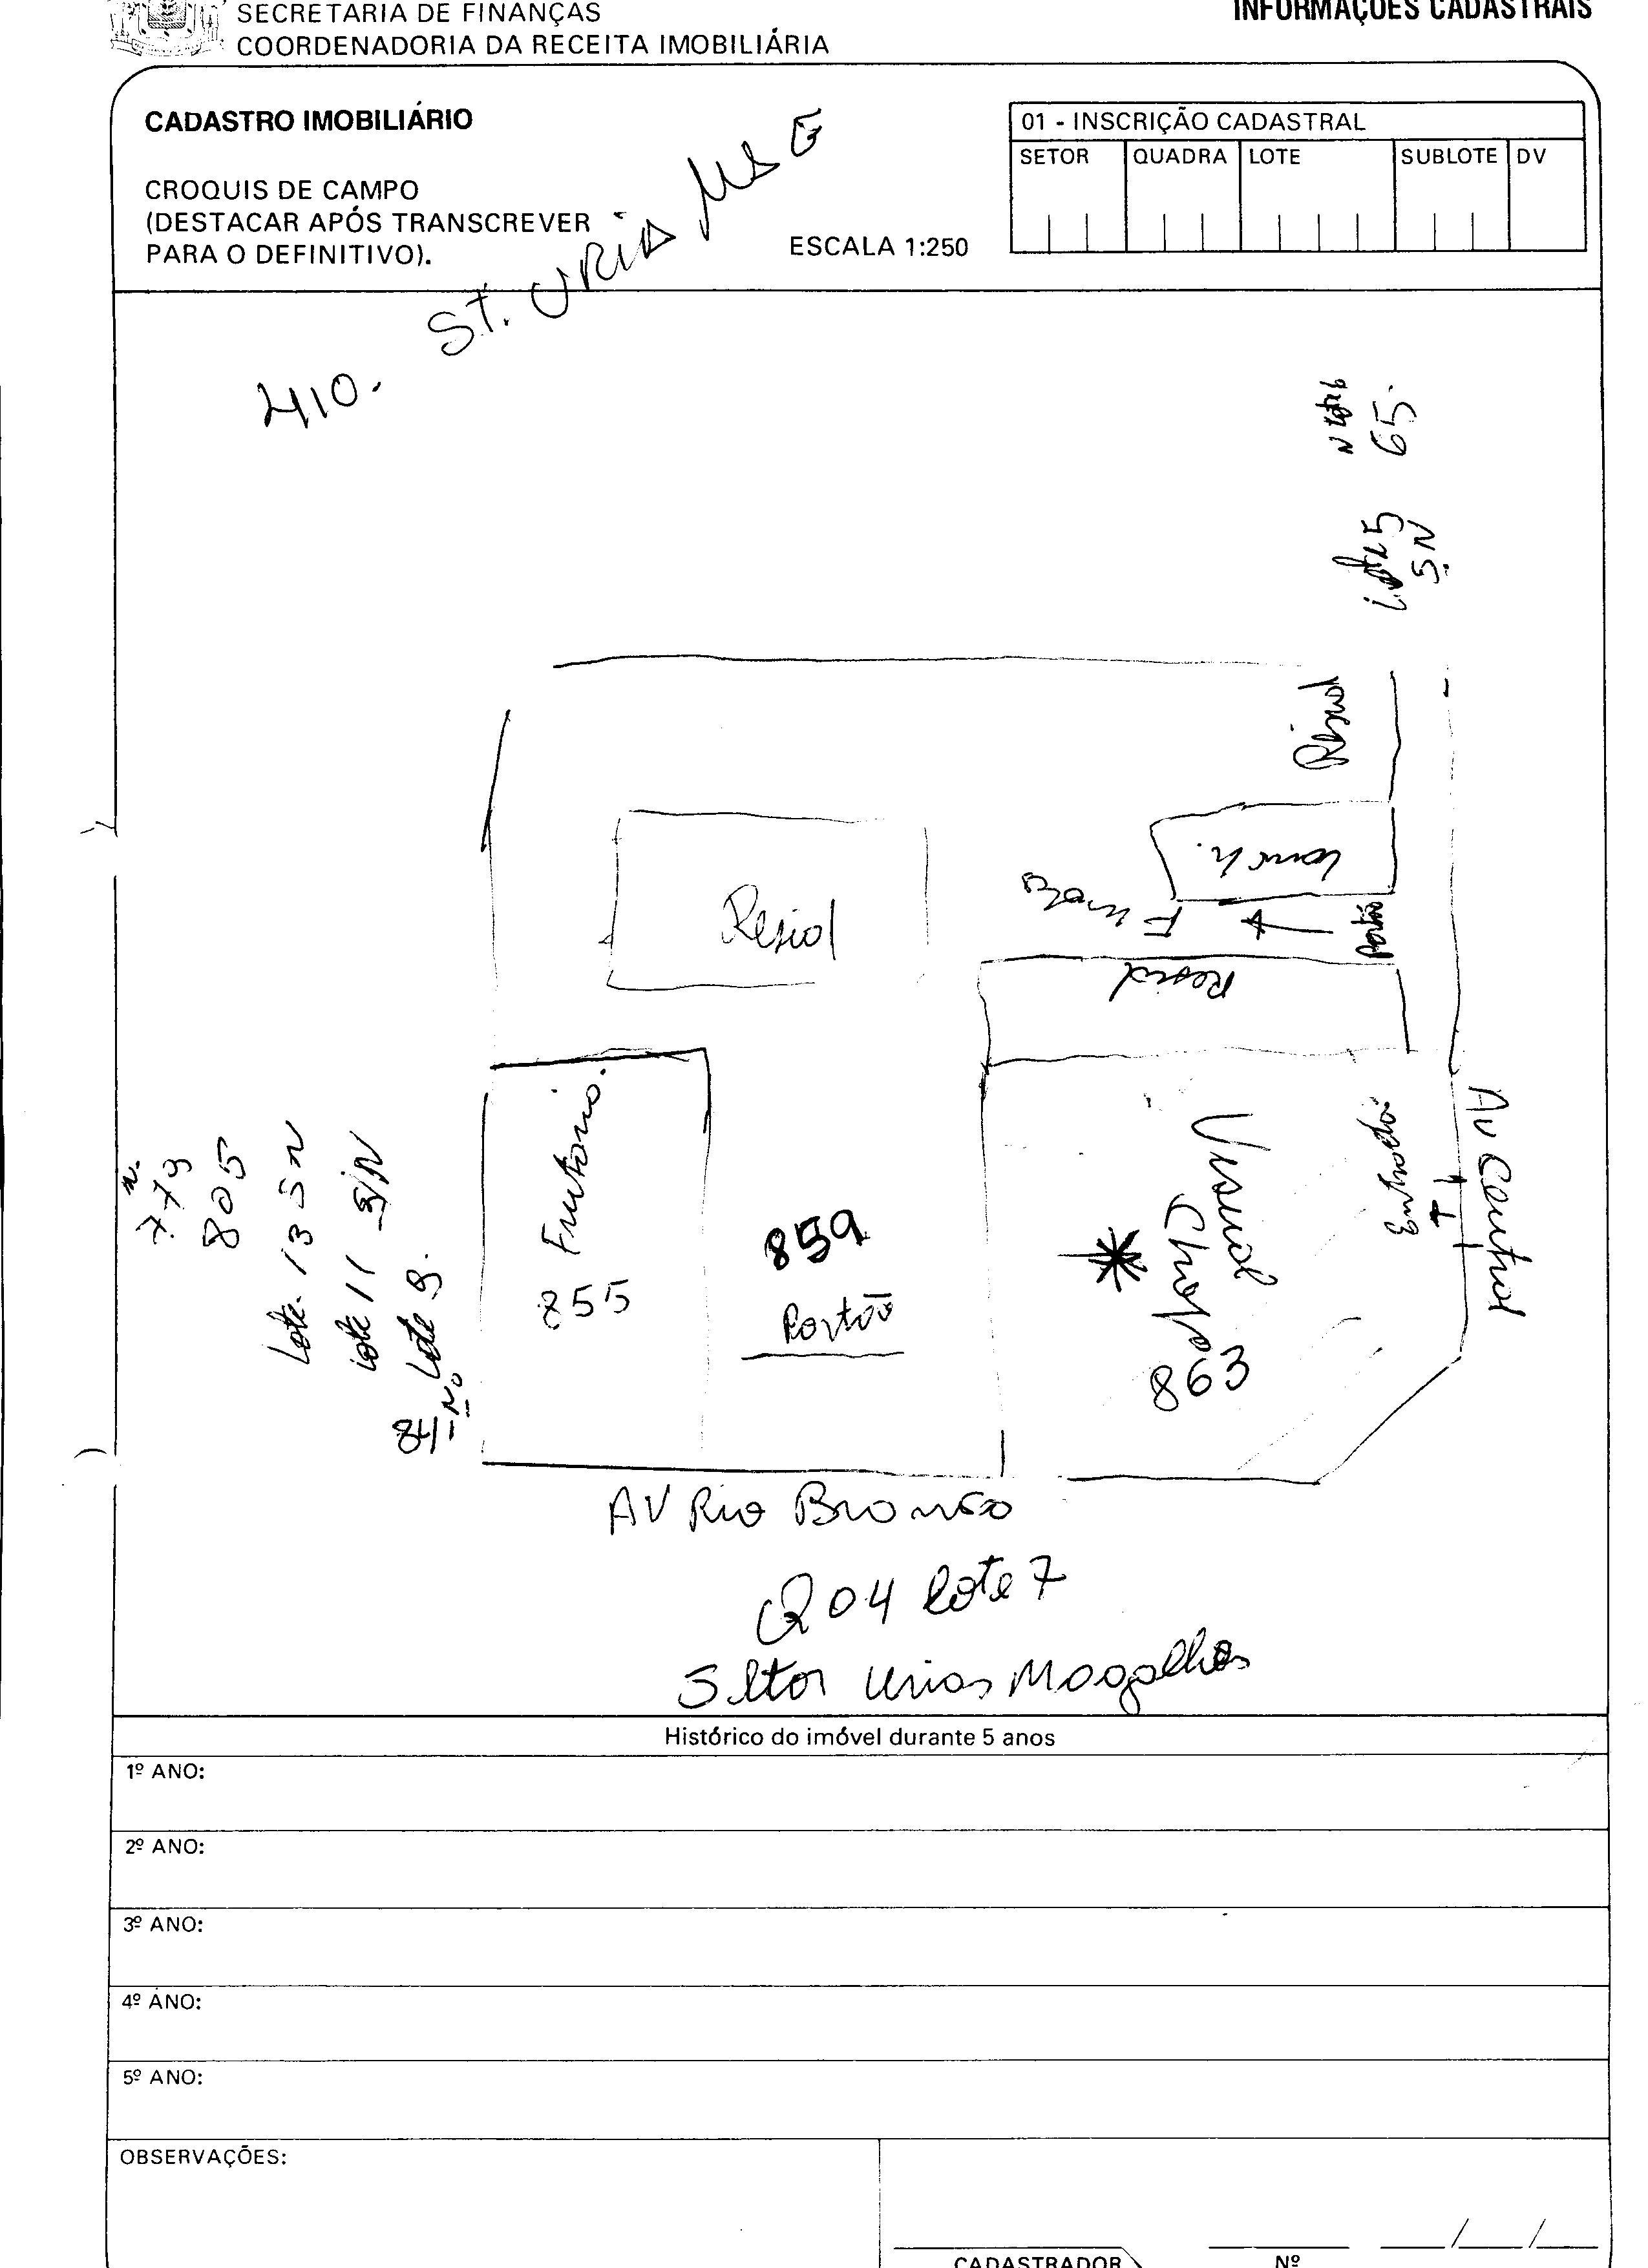 SECRETARIA DE FINANÇAS
COORDENADORIA DA RECEITA IMOBILIÁRIA
INFORMAÇÕES CADASTRAIS
CADASTRO IMOBILIÁRIO
CROQUIS DE CAMPO
(DESTACAR APÓS TRANSCREVER
PARA O DEFINITIVO).
ESCALA 1:250
01 - INSCRIÇÃO CADASTRAL
SETOR QUADRA LOTE SUBLOTE DV
410. ST.
65.
Lote 5
SN
Resid
Portão
Resid
Resid
Frutaria.
855
859
Portão
Visual
Chopp
863
Entrada
AV Central
N.
779
805
Lote 13 SN
Lote 11 S/N
Lote 9.
841 No
AV Rio Branco
Q 04 lote 7
Setor Urias Magalhães
Histórico do imóvel durante 5 anos
1º ANO:
2º ANO:
3º ANO:
4º ANO:
5º ANO:
OBSERVAÇÕES:
CADASTRADOR
Nº